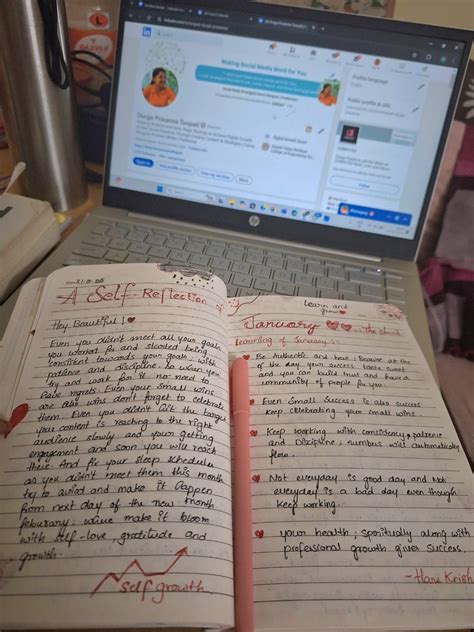 Making Social Media Work for You
Durga Prasanna
Public profile & URL
Follow
Messaging
hp
DAZZLE
31
A Self-Reflection of
Hey Beautiful!
Even you didn't meet all your goals
you wanted for and started being
consistent towards your goals with
patience and discipline. no worry you
try and work for it no need to
Raise regrets. Even your small wins
are also wins don't forget to celebrate
them. Even you didn't get the
you content is reaching to the right
audience slowly and your getting
engagement and soon you will reach
there. And fix your sleep schedule
as you didn't meet them this month
try to avoid and make it happen
from next day of the new month
feburary. we make it bloom
with self-love, gratitude and
growth.
self growth
Learn and
grow
January ... The
learning of January:
Be Authentic and true: Because at the
of the day your success taste sweet
and you can build trust and have a
community of people for you.
Even Small Success is also success
keep celebrating your small wins.
Keep working with consistency, patience
and discipline, numbers will automatically
flow.
Not everyday is good day and Not
everyday is a bad day even though
keep working.
your health, spiritually along with
professional growth gives success.
- Hare Krish